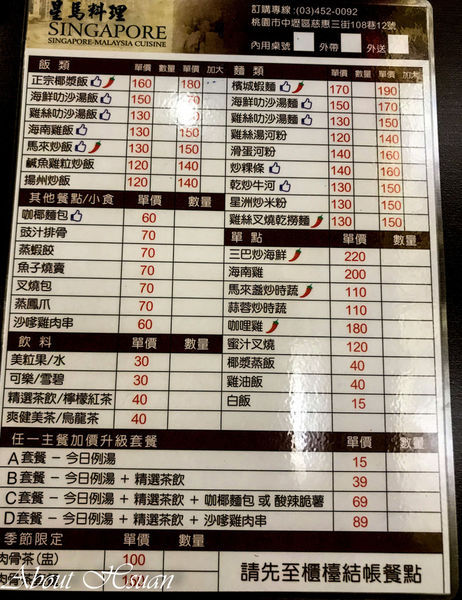 星馬料理
SINGAPORE
SINGAPORE-MALAYSIA CUISINE
訂購專線:(03)452-0092
桃園市中壢區慈惠三街108巷12號
內用桌號 外帶 外送
飯 類 單價 數量 加大
正宗椰漿飯 160 180
海鮮叻沙湯飯 150 170
雞絲叻沙湯飯 130 150
海南雞飯 130 150
馬來炒飯 130 150
鹹魚雞粒炒飯 120 140
揚州炒飯 120 140
其他餐點/小食 單價 數量
咖椰麵包 60
豉汁排骨 70
蒸蝦餃 70
魚子燒賣 70
叉燒包 70
蒸鳳爪 70
沙嗲雞肉串 60
飲 料 單價 數量
美粒果/水 30
可樂/雪碧 30
精選茶飲/檸檬紅茶 40
爽健美茶/烏龍茶 40
麵 類 單價 數量 單價 加大
檳城蝦麵 170 190
海鮮叻沙湯麵 150 170
雞絲叻沙湯麵 130 150
雞絲湯河粉 120 140
滑蛋河粉 140 160
炒粿條 140 160
乾炒牛河 130 150
星洲炒米粉 130 150
雞絲叉燒乾撈麵 130 150
單 點 單價 數量
三巴炒海鮮 220
海南雞 200
馬來盞炒時蔬 110
蒜蓉炒時蔬 110
咖哩雞 180
蜜汁叉燒 120
椰漿蒸飯 40
雞油飯 40
白飯 15
任一主餐加價升級套餐 單價 數量
A套餐 – 今日例湯 15
B套餐 – 今日例湯 + 精選茶飲 39
C套餐 – 今日例湯 + 精選茶飲 + 咖椰麵包 或 酸辣脆薯 69
D套餐 – 今日例湯 + 精選茶飲 + 沙嗲雞肉串 89
季節限定 單價 數量
肉骨茶(盅) 100
肉骨茶 150
請先至櫃檯結帳餐點
About Hsuan